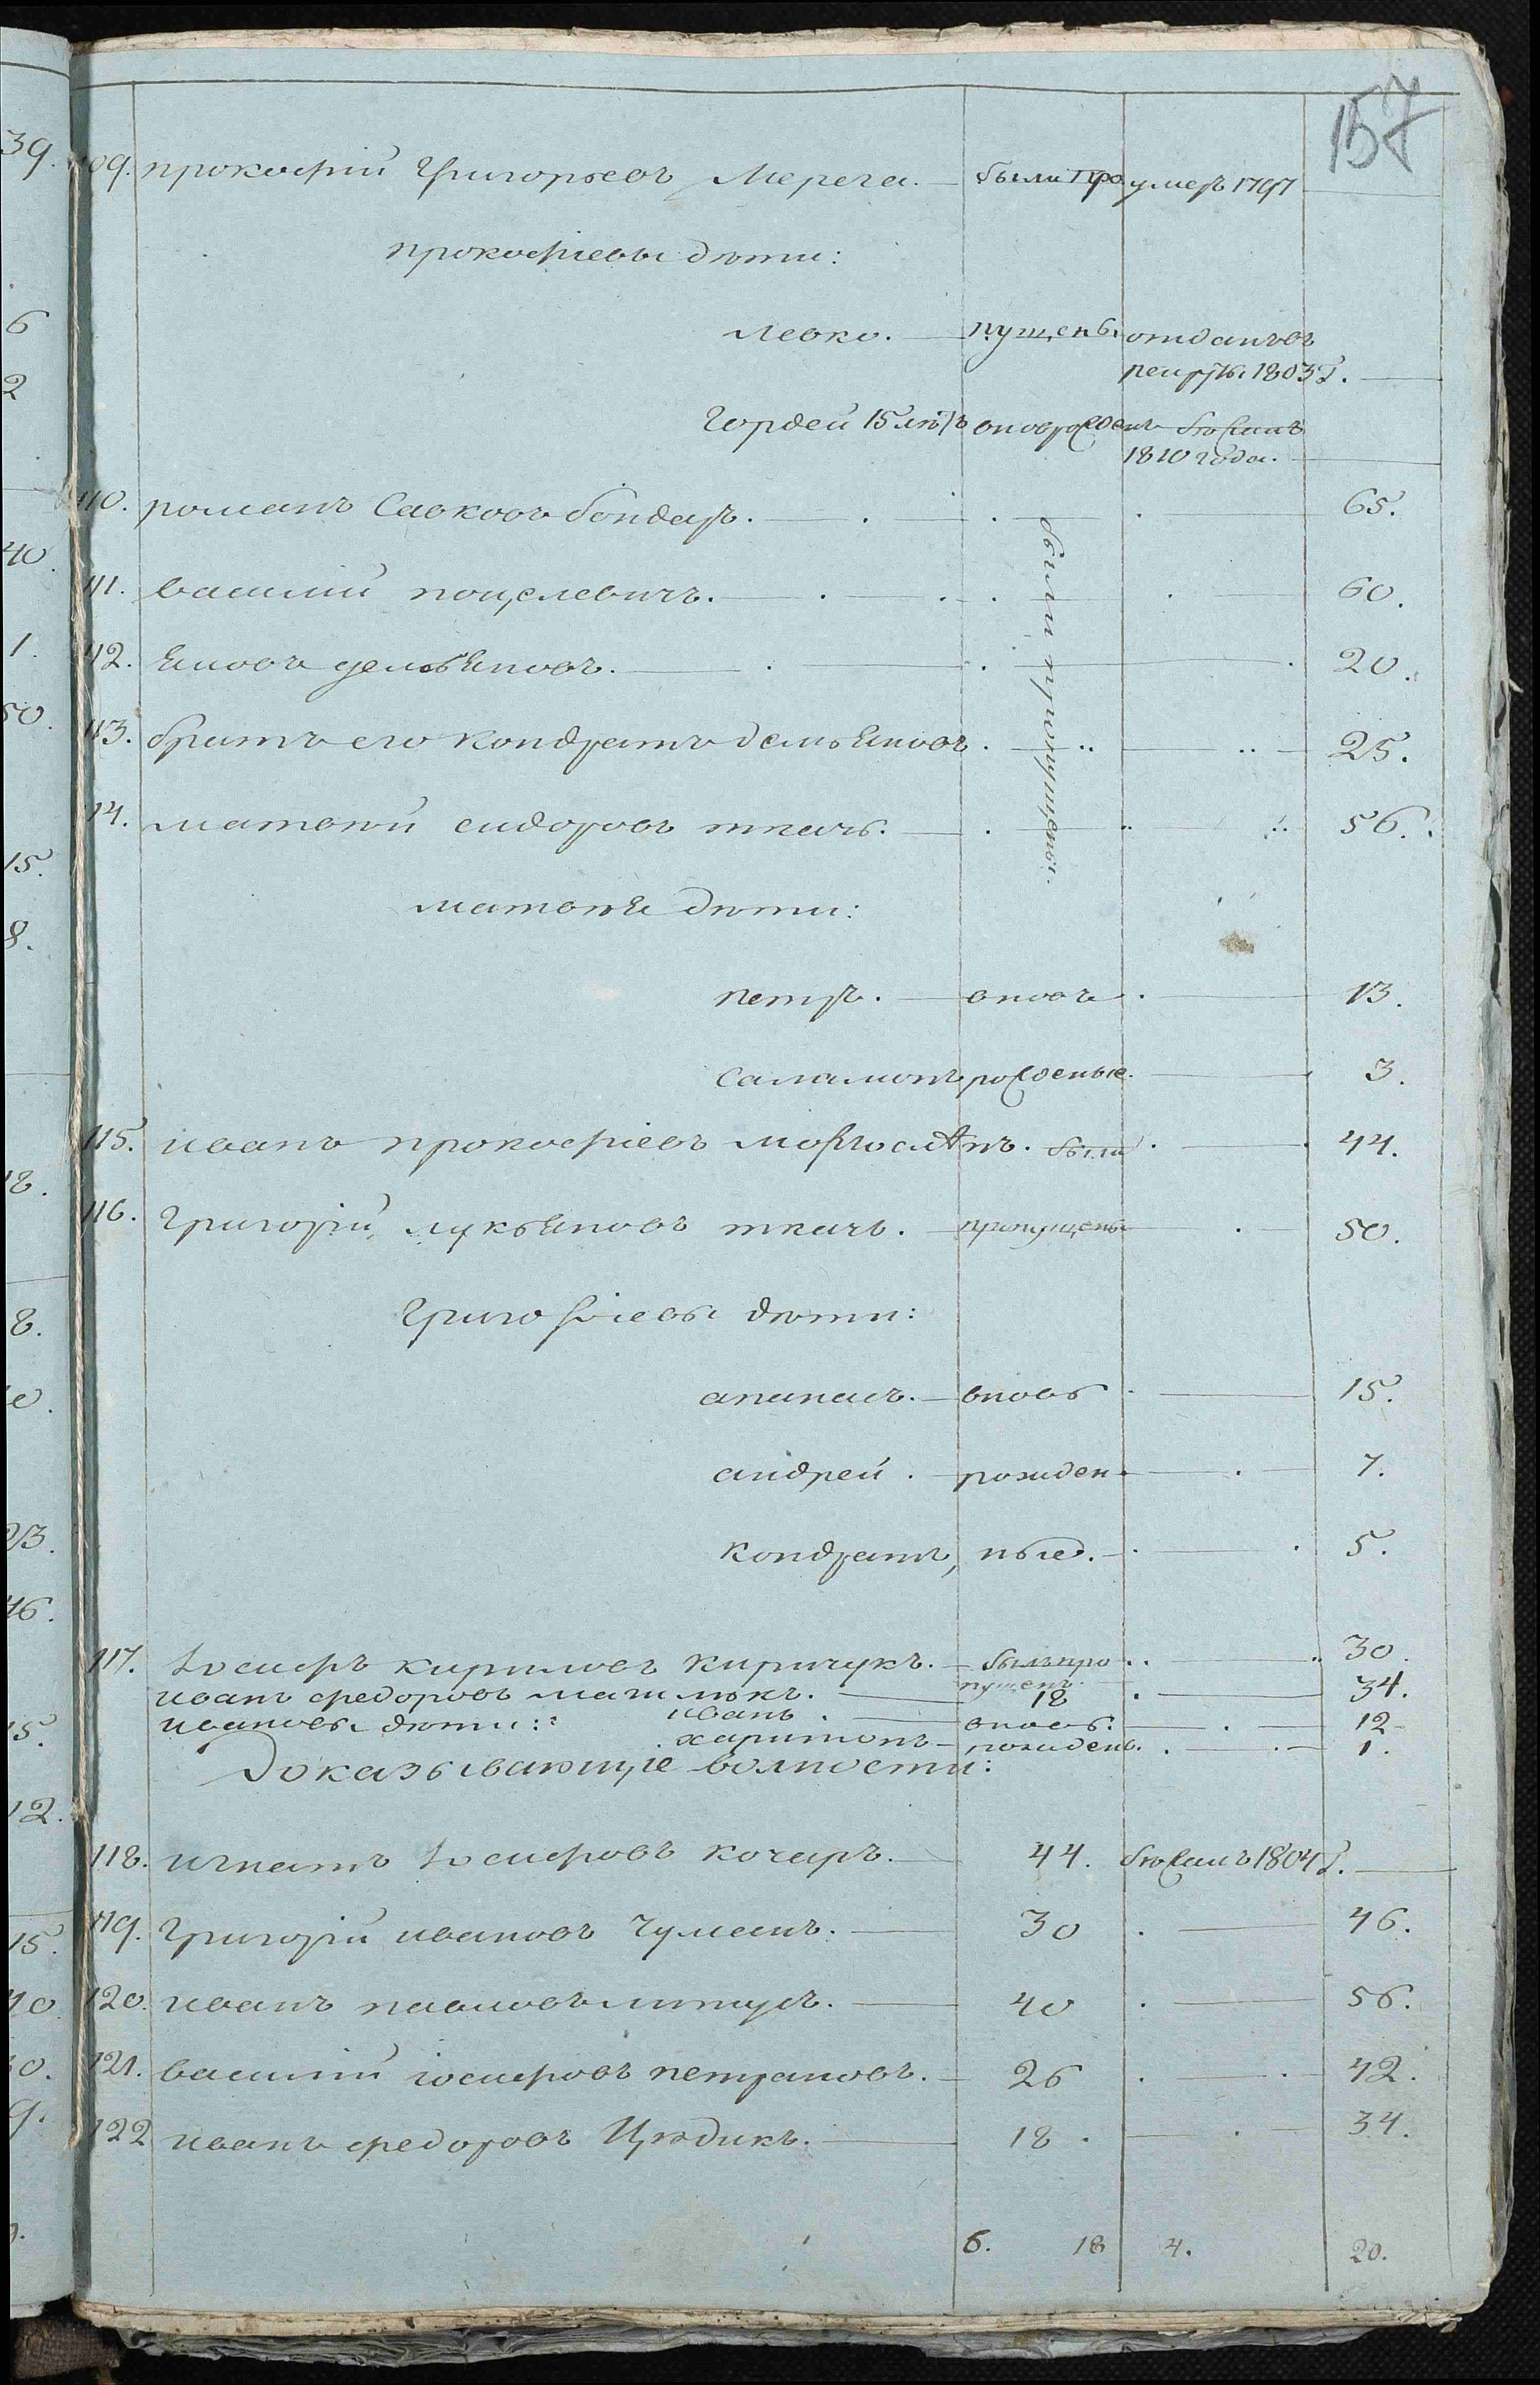 157
109. прокофій Григорьевъ Мерега. были про умеръ 1797
прокофіевы дѣти:
левко. пущены отданъ въ
рекруты 1803 г.
Гордей 15 лѣтъ вновь рожденъ бѣжалъ
1810 года.
110. романъ Савковъ бондаръ. 65.
были пропущены.
111. василій поцелевичъ. 60.
112. Яковъ демьяновъ. 20.
113. братъ его Кондратъ демьяновъ. 25.
114. матвѣй сидоровъ ткачъ. 56.
матвѣя дѣти:
петръ. вновь 13.
Саламонъ рожденые. 3.
115. иванъ прокофіевъ были 44.
116. Григорій лукьяновъ ткачъ. пропущены 50.
Григоріевы дѣти:
апанасъ. вновь 15.
андрей. рожден 7.
Кондратъ, ные. 5.
117. Іосифъ кириловъ Киричукъ. былъ про 30.
пущенъ.
иванъ федоровъ 18 34.
ивановы дѣти: иванъ вновь. 12
харитонъ рожденъ. 1.
Доказывающіе волности:
118. игнатъ Іосифовъ кочаръ. 44. бѣжалъ 1804 г.
119. Григорій ивановъ Чумакъ. 30 46.
120. иванъ павловъ литусъ. 40 56.
121. василій іосифовъ петрановъ. 26 42.
122 иванъ федоровъ Цюдикъ. 18. 34.
6. 18 4. 20.